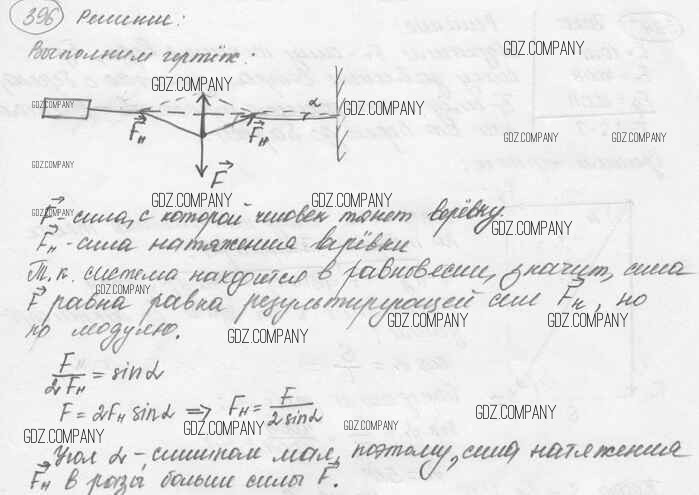 396 Решение:
Выполним чертёж:
GDZ.COMPANY
GDZ.COMPANY
GDZ.COMPANY
α
GDZ.COMPANY
F⃗н
F⃗н
GDZ.COMPANY
GDZ.COMPANY
GDZ.COMPANY
F⃗
GDZ.COMPANY
GDZ.COMPANY
GDZ.COMPANY
F⃗ - сила, с которой человек тянет верёвку.
GDZ.COMPANY
F⃗н - сила натяжения верёвки
Т.к. система находится в равновесии, значит, сила
GDZ.COMPANY
F⃗ равна равна результирующей сил F⃗н, но
по модулю.
GDZ.COMPANY
GDZ.COMPANY
GDZ.COMPANY
F/2Fн = sinα
F = 2Fн sinα => Fн = F/2sinα
GDZ.COMPANY
GDZ.COMPANY
GDZ.COMPANY
GDZ.COMPANY
Угол α - слишком мал, поэтому, сила натяжения
F⃗н в разы больше силы F⃗.